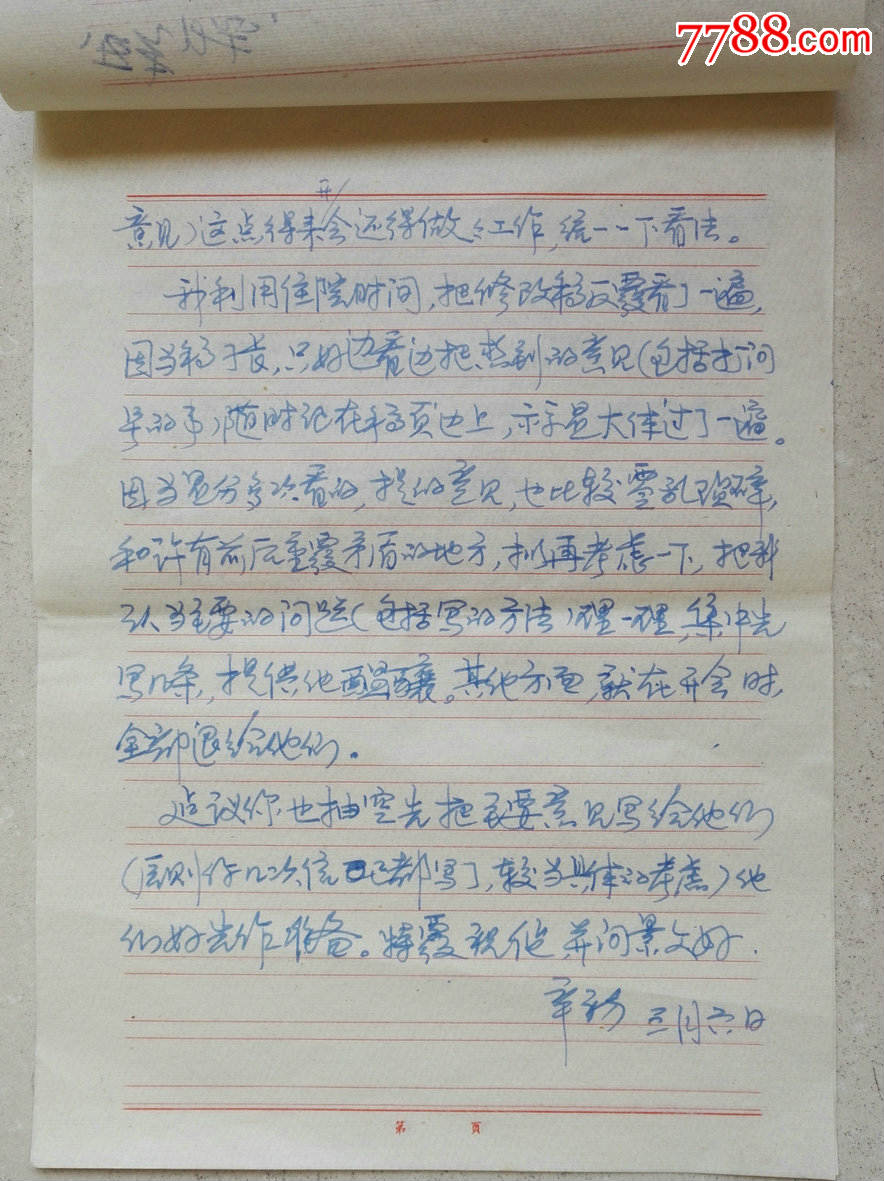 7788.com
开
意见）这点得来会还得做些工作，统一一下看法。
我利用住院时间，把修改稿反覆看了一遍，
因为稿子长，只好边看边把想到的意见（包括打问
号的事）随时记在稿页边上，亦算是大体过了一遍。
因为是分多次看的，提的意见，也比较零乱琐碎，
和许有前后重覆矛盾的地方，拟再考虑一下，把我
认为主要的问题（包括写的方法）理一理，集中先
写几条，提供他酝酿。其他方面，就在开会时，
全部退给他们。
建议你也抽空先把主要意见写给他们
（原则你几次信已都写了，较为具体的考虑）他
们好先作准备。特覆祝健 并问景文好．
三月六日
第 页